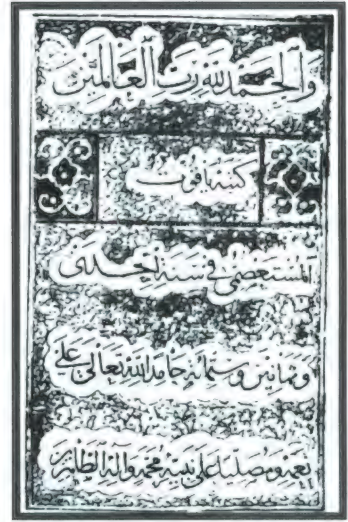 والحمد لله رب العالمين
كتبه ياقوت
المستعصمي في سنة إحدى
وثمانين وستمائة حامدا لله تعالى على
نعمه ومصليا على نبيه محمد وآله الطاهرين